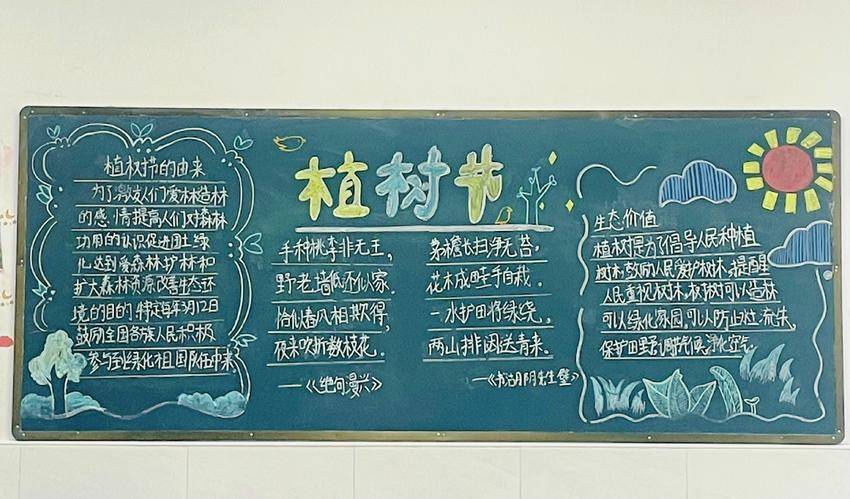 植树节
植树节的由来
为了激发人们爱林造林
的感情提高人们对森林
功用的认识促进国土绿
化达到爱森林护林和
扩大森林资源改善生态环
境的目的
每年3月12日
鼓励全国各族人民积极
参与到绿化祖国
中来
手种桃李非无主,
野老墙低还似家.
恰似春风相欺得,
夜来吹折数枝花.
——《绝句漫兴》
茅檐长扫净无苔.
花木成畦手自栽.
一水护田将绿绕,
两山排闼送青来.
——《书湖阴先生壁》
生态价值
植树节是为了倡导人民种植
树林,鼓励人民爱护树林,提醒
人民重视树林.植树可以造林
可以绿化家园,可以防止
流失,
保护田野,调节气候,净化空气.